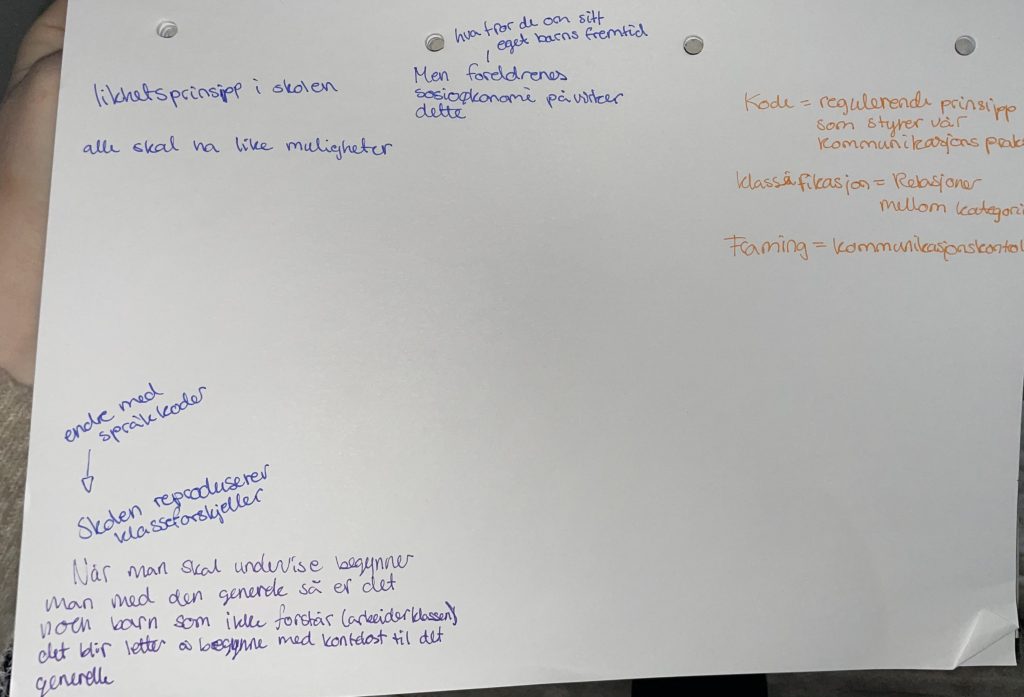 hva tror de om sitt
eget barns fremtid
Men foreldrenes
sosioøkonomi påvirker
dette
likhetsprinsipp i skolen
alle skal ha like muligheter
Kode = regulerende prinsipp
som styrer vår
kommunikasjons prak
klassifikasjon = Relasjoner
mellom kategori
Faming = kommunikasjonskontrol
endre med
språkkoder
Skolen reproduserer
klasseforskjeller
Når man skal undervise begynner
man med den generele så er det
noen barn som ikke forstår (arbeiderklassen)
det blir letter å begynne med kontekst til det
generelle